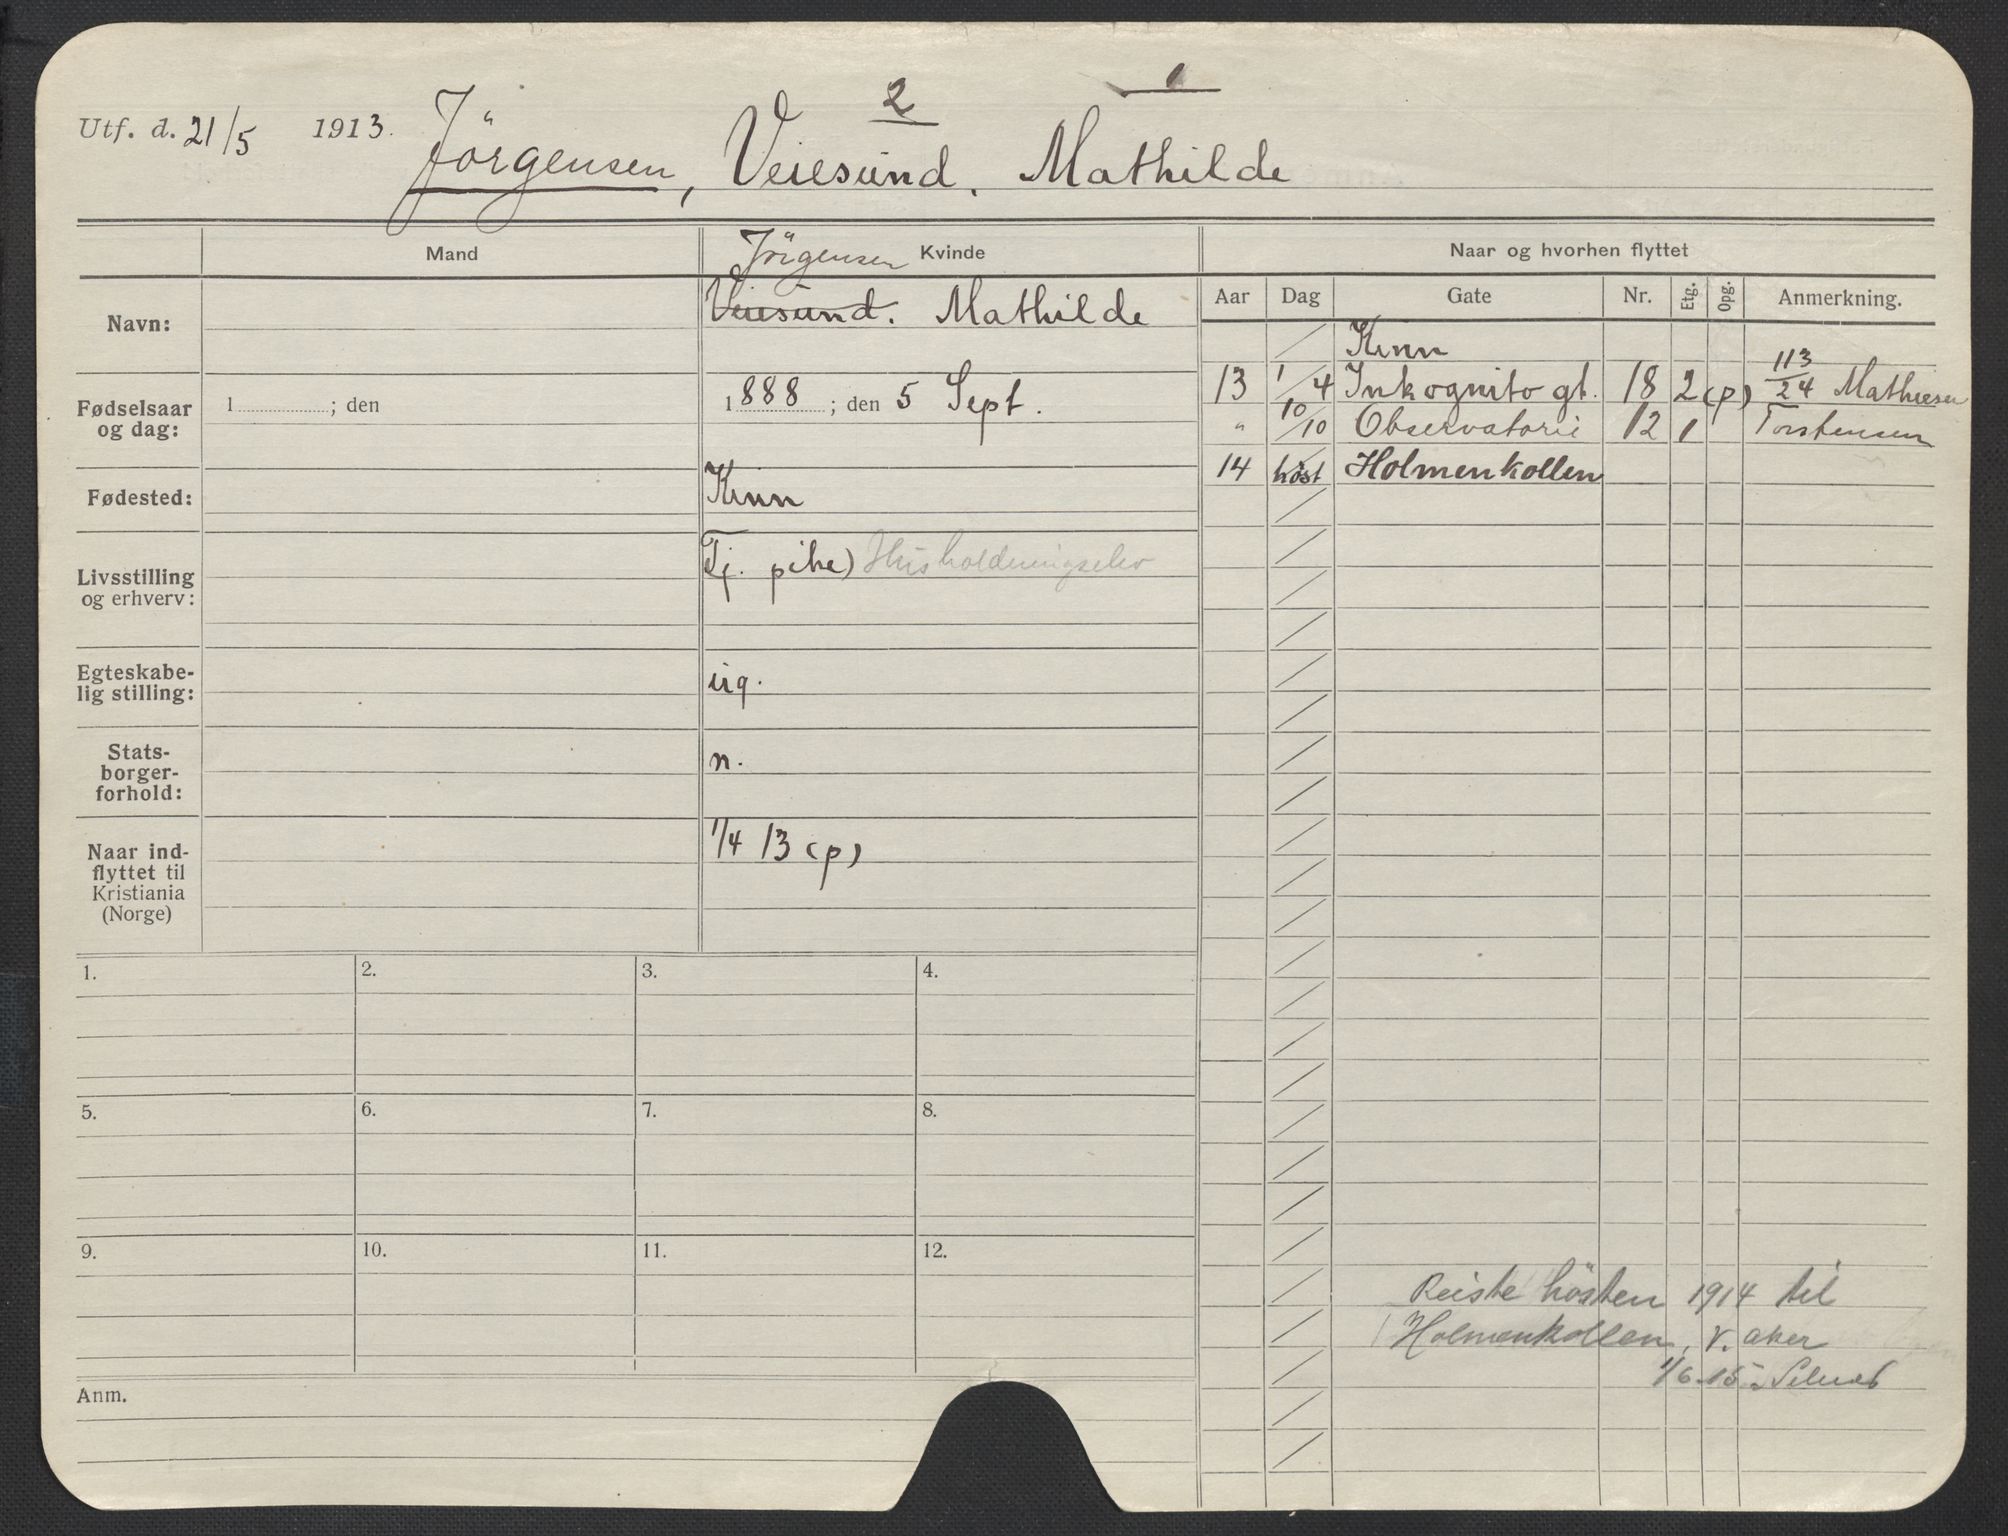 2 1
Utf. d. 21/5 1913. Jörgensen, Veiesund. Mathilde
Mand
Jörgensen Kvinde
Navn: Veiesund. Mathilde
Fødselsaar og dag: 1 ; den
1888 ; den 5 Sept.
Fødested: Kinn
Livsstilling og erhverv: Tj. pike) Husholdningselev
Egteskabe-
lig stilling: ug.
Stats-
borger-
forhold: n.
Naar ind-
flyttet til
Kristiania
(Norge) 1/4 13 (p)
Naar og hvorhen flyttet
Aar Dag Gate Nr. Etg. Opg. Anmerkning.
Kinn
13 1/4 Inkognito gt. 18 2 (p) 113/24 Mathiesen
" 10/10 Observatorie 12 1 Torstensen
14 höst Holmenkollen
1. 2. 3. 4.
5. 6. 7. 8.
9. 10. 11. 12.
Anm.
Reiste hösten 1914 til
Holmenkollen, v. aker
1/6 15